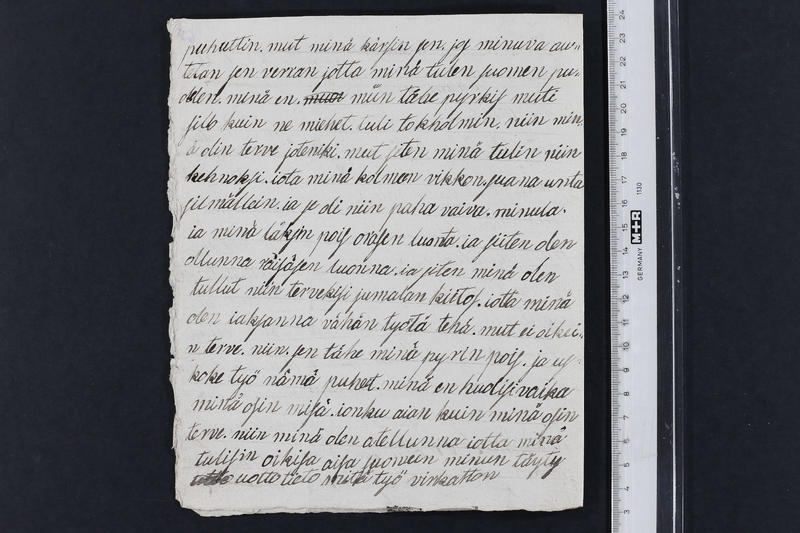 puhuttin. mut minä kärsin sen. jos minuva au=
tetan sen verran jotta minä tulen suomen pu=
olen. minä en niin tähe pyrkis mute
silo kuin ne miehet. tuli tokholmin. niin min
ä olin terve jotenki. mut siten minä tulin niin
kehnoksi. iota minä kolmen vikkon. sana unta
silmällein. ia se oli niin paha vaiva. minula.
ia minä läksin pois orasen luonta. ia siiten olen
ollunna räisäsen luonna. ia siten minä olen
tullut niin terveksi jumalan kiitos. iotta minä
olen iaksanna vähän työtä tehä. mut ei oikei=
n terve. niin. sen tähe minä pyrin pois. ja us=
koke työ nämä puhet. minä en huolisi vaika
minä osin misä. ionku aian kuin minä osin
terve. niin minä olen atellunna iotta minä
tulisin oikisa aisa suomeen minun täyty
uotto tieto mitä työ virkatton